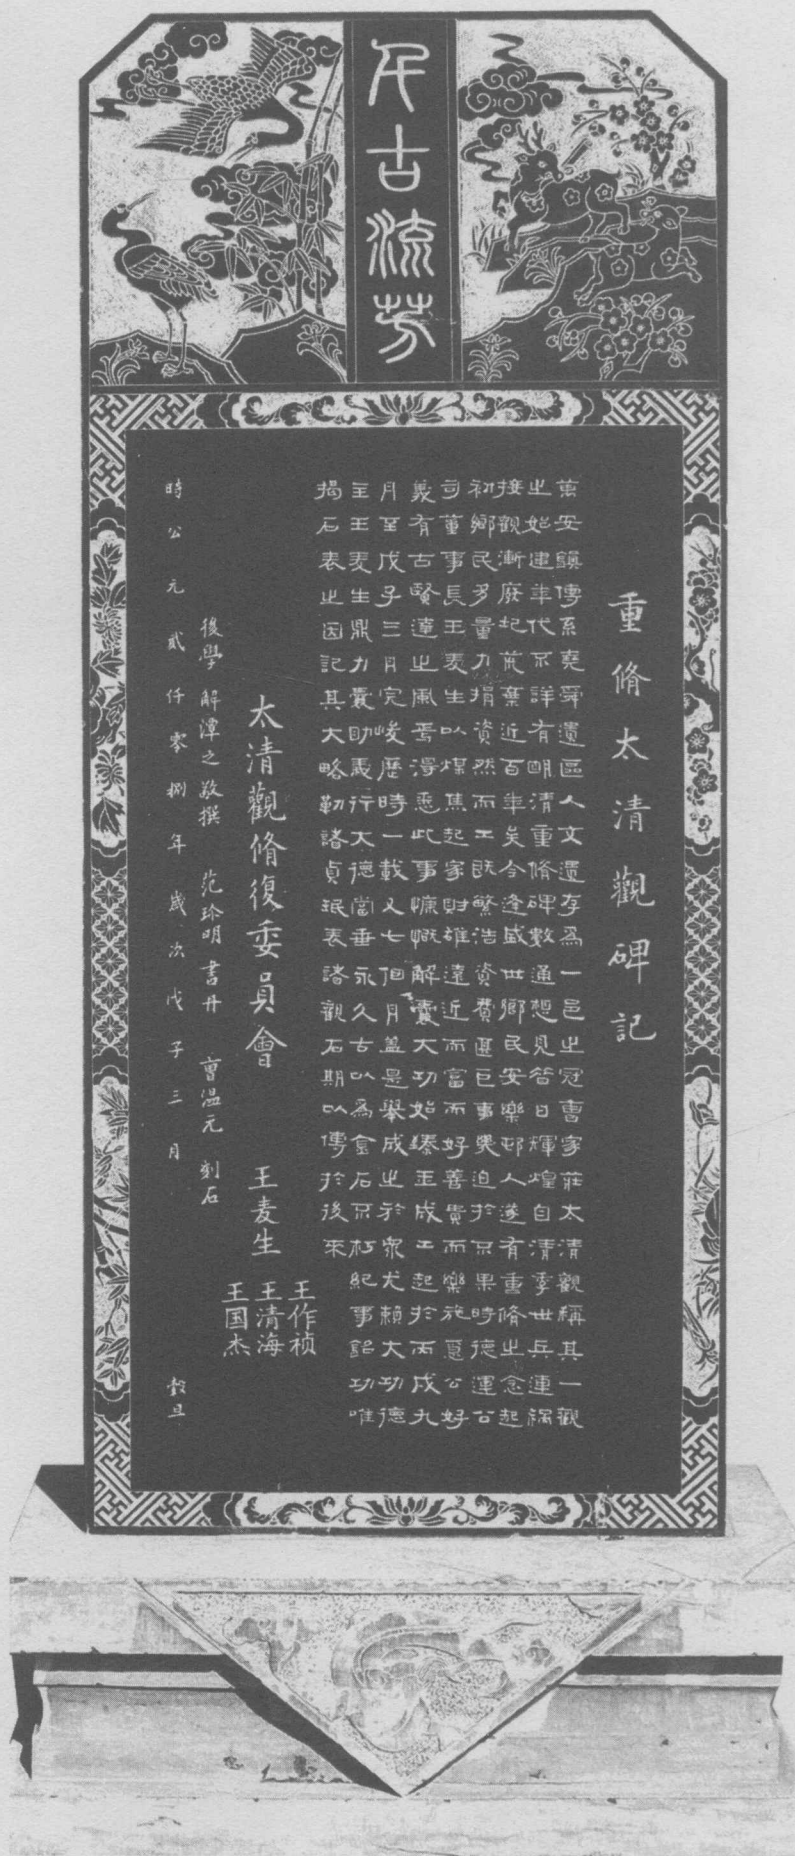 千古流芳
重脩太清觀碑記
萬安鎮傳系堯舜遺區人文遺存為一邑之冠曹家莊太清觀稱其一觀
之始建年代不詳有明清重脩碑數通想見昝日輝煌自清季世兵連禍
接觀漸廢圮荒棄近百年矣今逢盛世鄉民安樂邨人遂有重脩之念起
初鄉民多量力捐資然而工既繁浩資費甚巨事幾迫於不果時德運公
司董事長王麦生以煤焦起家財雄遠近而富而好善貴而樂施麦公好
義有古賢達之風焉得悉此事慷慨解囊大功始臻玉成工起於丙戌九
月至戊子三月完峻歷時一載又七個月蓋是舉成之於眾尤賴大功德
主王麦生鼎力囊助義行大德當垂永久古以為金石不朽紀事銘功唯
揭石表之因記其大略勒諸貞珉表諸觀石期以傳於後來
太清觀脩復委員會 王麦生
王作祯
王清海
王国杰
後學 解潭之敬撰 范珍明書丹 曹温元 刻石
時公元貳仟零捌年歲次戊子三月 穀旦